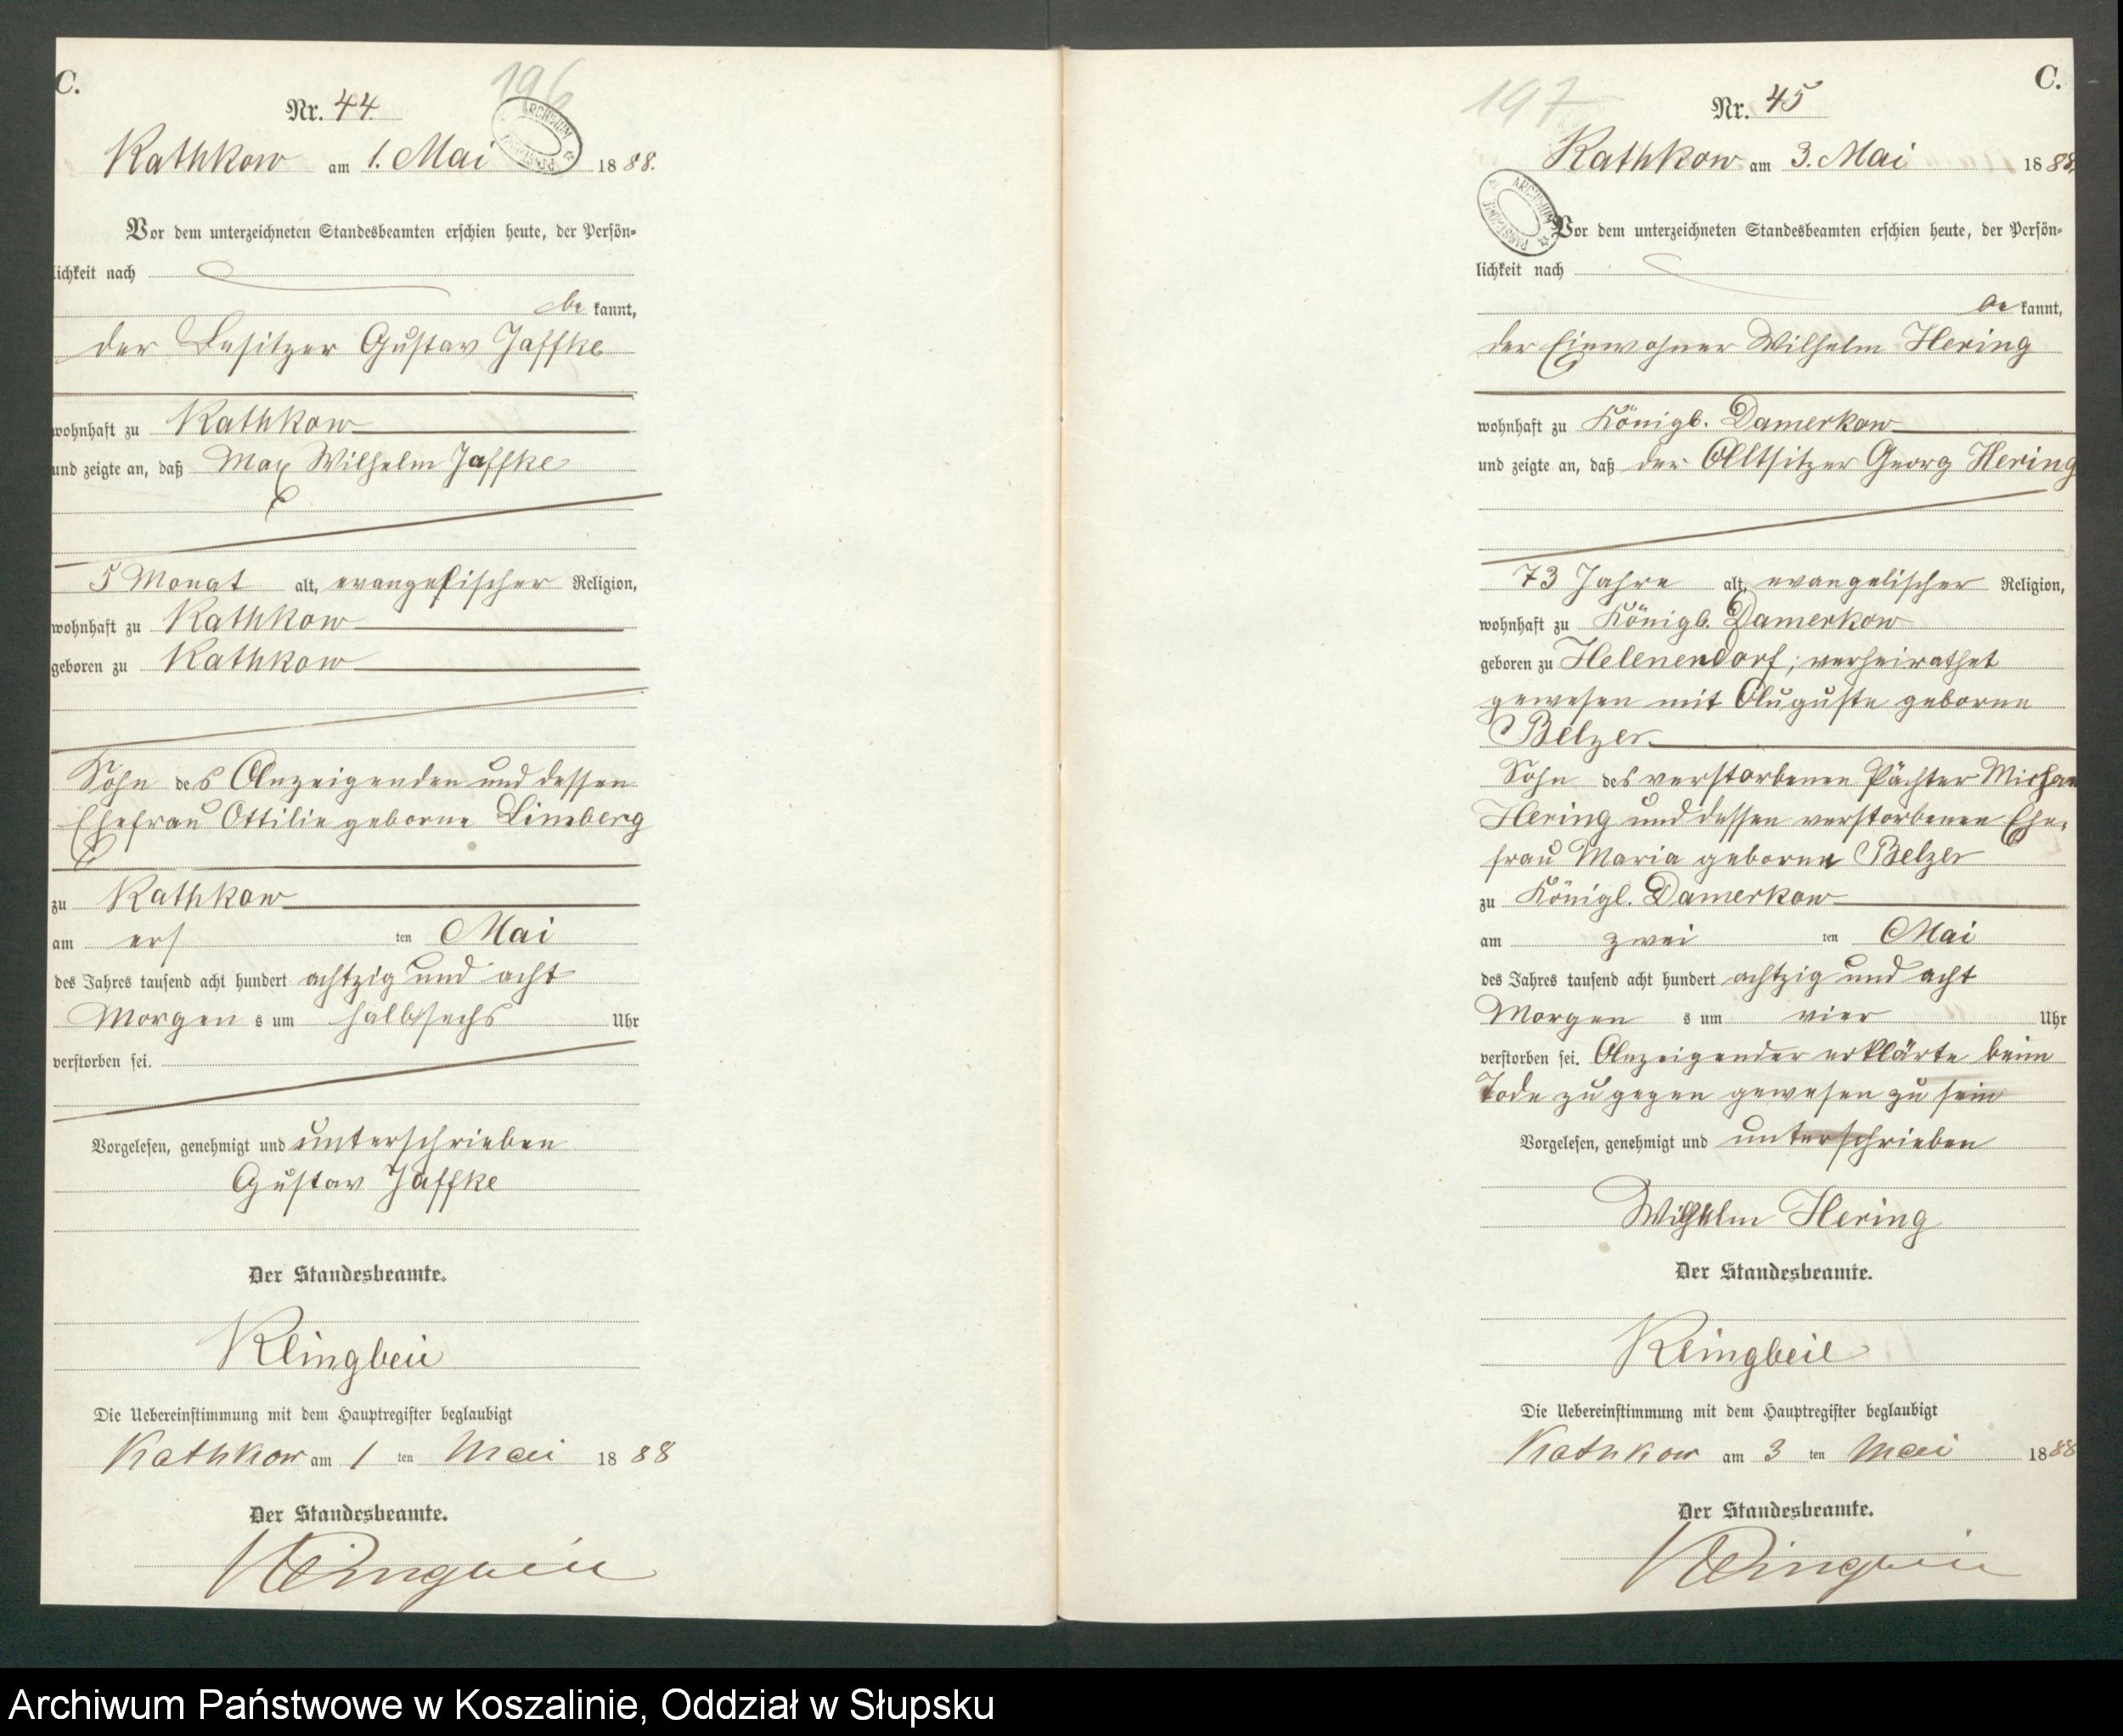 C.
196
Nr. 44.
ARCHIWUM
Kathkow am 1. Mai 1888.
Vor dem unterzeichneten Standesbeamten erschien heute, der Persön-
lichkeit nach
be kannt,
der Besitzer Gustav Jaffke
wohnhaft zu Kathkow
und zeigte an, daß Max Wilhelm Jaffke
5 Monat alt, evangelischer Religion,
wohnhaft zu Kathkow
geboren zu Kathkow
Sohn des Anzeigenden und dessen
Ehefrau Ottilie geborne Limberg
zu Kathkow
am ers ten Mai
des Jahres tausend acht hundert achtzig und acht
Morgen s um halb sechs Uhr
verstorben sei.
Vorgelesen, genehmigt und unterschrieben
Gustav Jaffke
Der Standesbeamte.
Klingbeil
Die Uebereinstimmung mit dem Hauptregister beglaubigt
Kathkow am 1 ten Mai 1888
Der Standesbeamte.
Klingbeil
C.
197
Nr. 45
Kathkow am 3. Mai 1888.
ARCHIWUM PAŃSTWOWE
Vor dem unterzeichneten Standesbeamten erschien heute, der Persön-
lichkeit nach
be kannt,
der Einwohner Wilhelm Hering
wohnhaft zu Königl. Damerkow
und zeigte an, daß der Altsitzer Georg Hering
73 Jahre alt, evangelischer Religion,
wohnhaft zu Königl. Damerkow
geboren zu Helenendorf, verheirathet
gewesen mit Auguste geborne
Belzer
Sohn des verstorbenen Pächter Michae
Hering und dessen verstorbenen Ehe-
frau Maria geborne Belzer
zu Königl. Damerkow
am zwei ten Mai
des Jahres tausend acht hundert achtzig und acht
Morgen s um vier Uhr
verstorben sei. Anzeigender erklärte beim
Tode zugegen gewesen zu sein
Vorgelesen, genehmigt und unterschrieben
Wilhelm Hering
Der Standesbeamte.
Klingbeil
Die Uebereinstimmung mit dem Hauptregister beglaubigt
Kathkow am 3 ten Mai 1888
Der Standesbeamte.
Klingbeil
Archiwum Państwowe w Koszalinie, Oddział w Słupsku